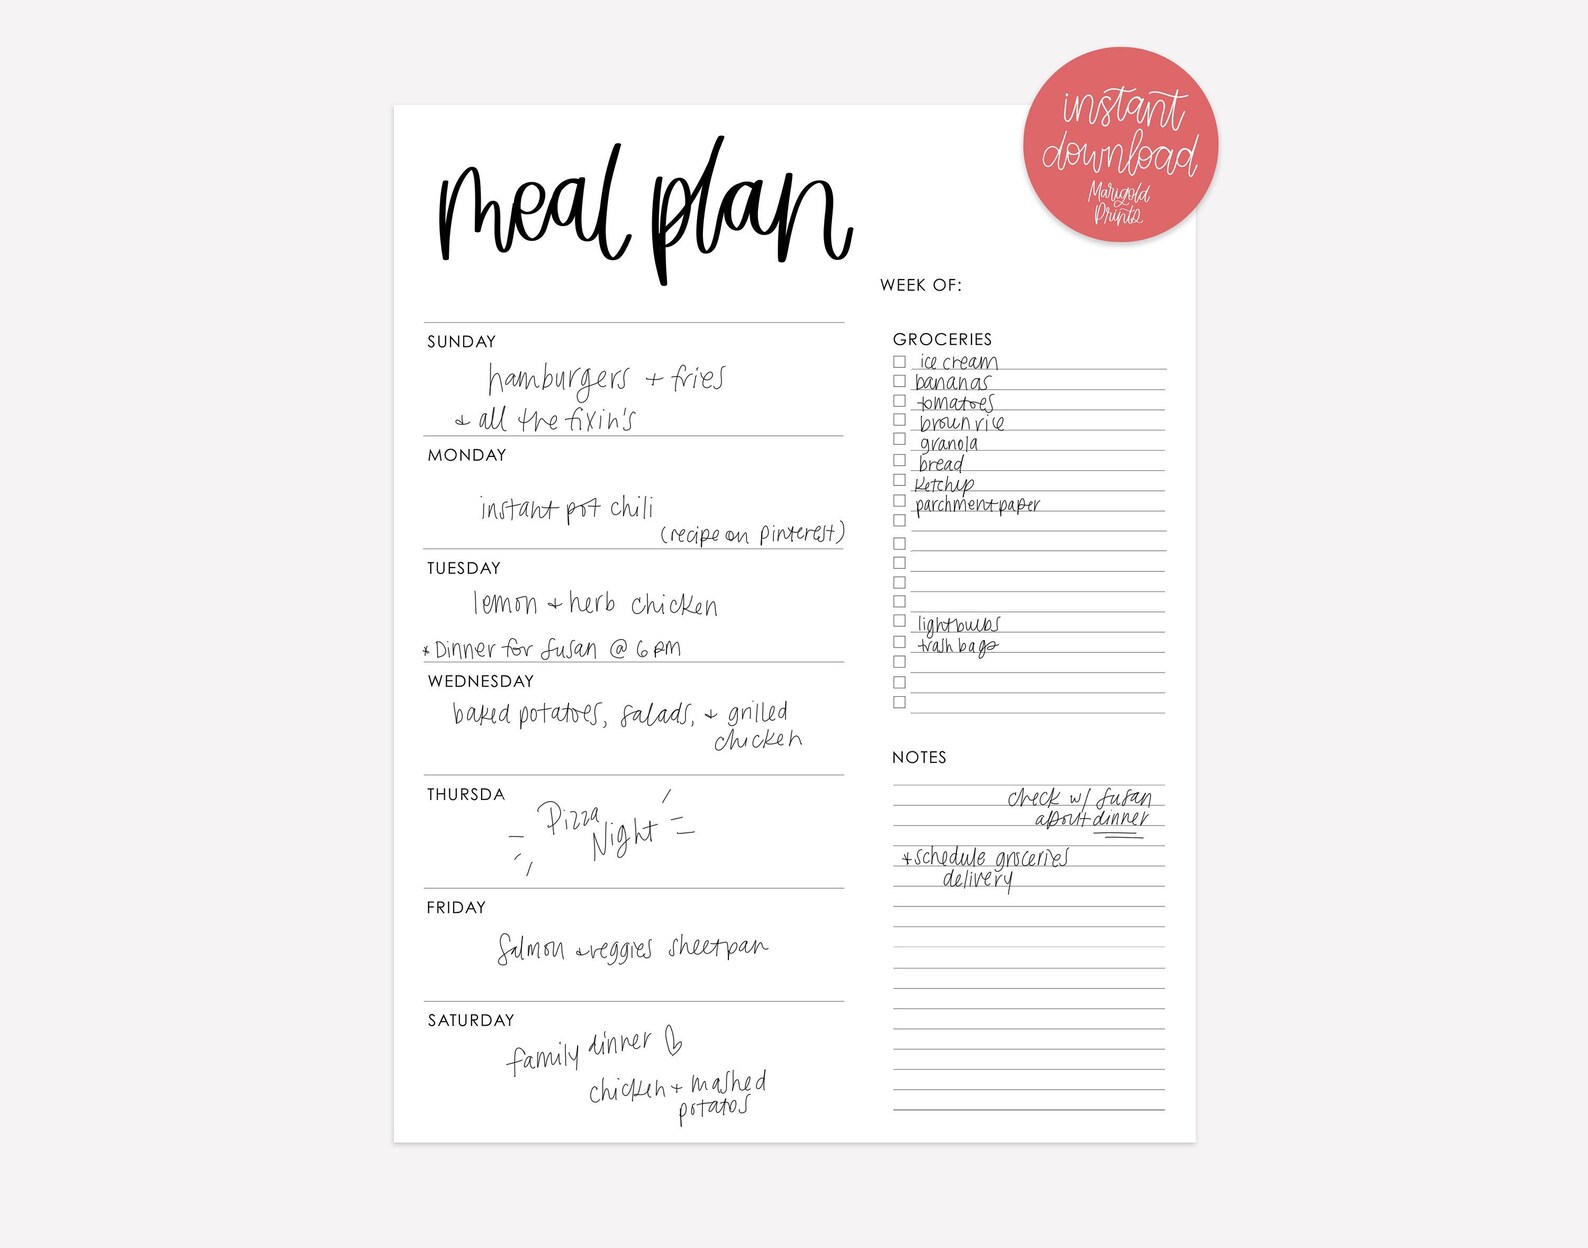 instant
download
Marigold
Prints
meal plan
WEEK OF:
SUNDAY
hamburgers + fries
+ all the fixin's
MONDAY
instant pot chili
(recipe on pinterest)
TUESDAY
lemon + herb chicken
* Dinner for Susan @ 6 PM
WEDNESDAY
baked potatoes, salads, + grilled
chicken
THURSDA
Pizza
Night
FRIDAY
Salmon + veggies sheetpan
SATURDAY
family dinner
chicken + mashed
potatos
GROCERIES
ice cream
bananas
tomatoes
brown rice
granola
bread
ketchup
parchment paper
lightbulbs
trash bags
NOTES
check w/ Susan
about dinner
* schedule groceries
delivery